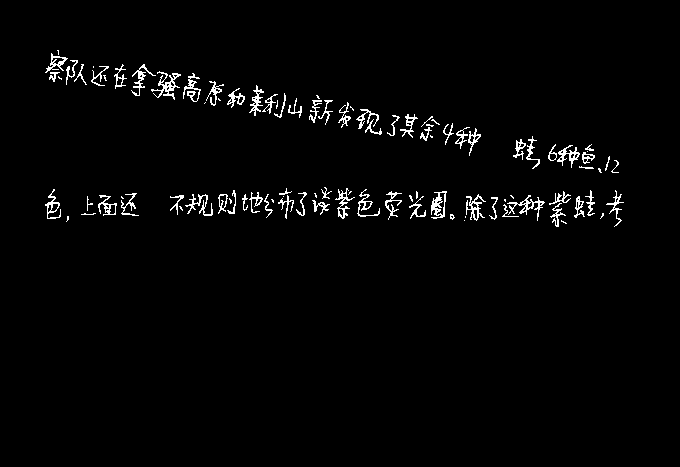 察队还在拿骚高原和莱利山新发现了其余4种 蛙,6种鱼、12
色,上面还 不规则地分布了淡紫色荧光圈。除了这种紫蛙,考